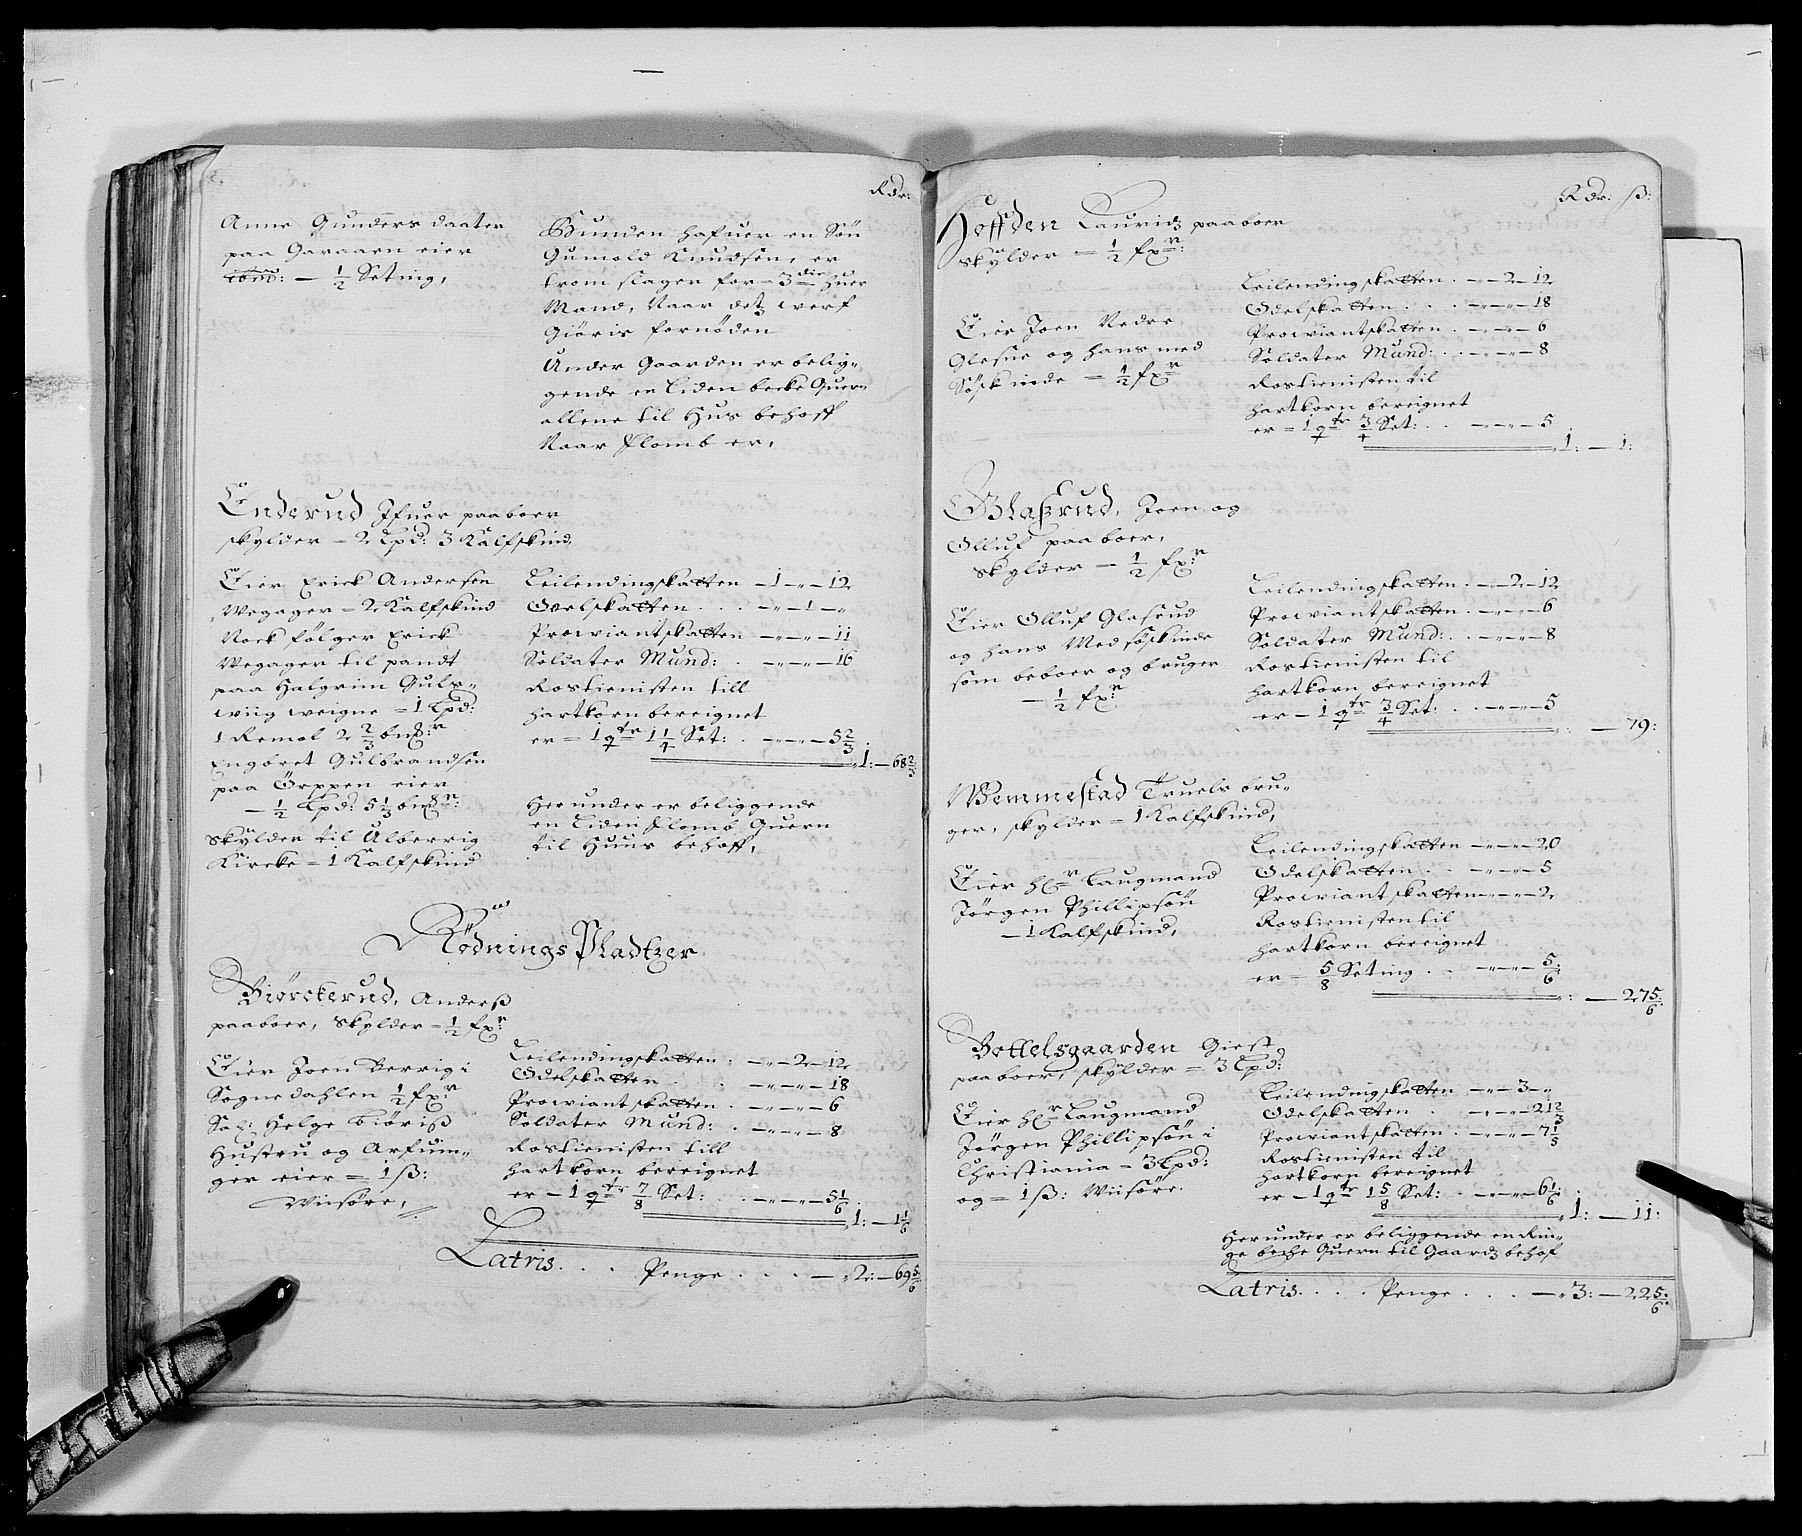 Rdr:
Anne Gunders daater
paa Garaaen eier
ibm: — ½ Seting,
Bunden hafuer en Sön
Gumold Knudsen, er
tromslager for 3die huer
Mand, Naar det werf
Giöris fornöden
Under Gaarden er belig-
gende en Liden becke Quern
allene til Hus behoff
Naar flomb er,
Enderud Ifuer paaboer
skylder – 2 Lpd: 3 Kalfskind,
Eier Erick Andersen
Wegager = 2 Kalfskind
Nock følger Erick
Wegager til pandt
paa Halgrim Guls-
wiig weigne = 1 Lpd:
1 Remol 2 ⅔ bmrr
Engebret Gulbrandsen
paa Örppen eier
— ½ Lpd: 5 ⅓ bmrr:
skylder til Ulberrig
Kircke = 1 Kalfskind
Leilendingskatten – 1 – „ – 12
Odelskatten . . . – „ – 1 – „
Prowiantskatten – „ – „ – 11
Soldater Mund: . – „ – „ – 16
Rostienisten till
hartkorn bereignet
er = 1 qtr 1 ¼ Set: . – „ – „ – 5 ⅔ .
„ 1: – 68 ⅔
Her under er beliggende
en Liden flomb Quern
til Huus behoff,
Rödnings Pladtzer
Biørckerud, Anderß
paaboer, skylder – ½ fxr:
Eier Joen Berrig i
Sognedahlen ½ fxr
Sal: Helge Biöriß
Hustru og Arfuin-
ger eier = 1 ß:
Wiisöre,
Leilendingskatten . – „ – 2 – 12
Odelskatten . . – „ – „ – 18
Prowiantskatten . – „ – „ – 6
Soldater Mund: . – „ – „ – 8
Rostienisten till
hartkorn bereignet
er – 1 qtr ⅞ Set: . . – „ – „ – 5 ⅙ .
„ 1: – 1 ⅙
Latris . . . Penge . . . — „ 2: – 69 ⅚
Rdr: ß:
Hoffden Lauridz paaboer
skylder = ½ fxr:
Eier Joen Nedre
Glesne og hans med
Söskinde = ½ fxr
Leilendingskatten . – „ – 2 – 12
Odelskatten . . . – „ – „ – 18
Prowiantskatten . – „ – „ – 6
Soldater Mund: . . – „ – „ – 8
Rostienisten til
hartkorn bereignet
er = 1 qtr ¾ Set: . . – „ – „ – 5 .
„ 1: – 1:
Glaßrud, Joen og
Olluf paaboer,
skylder – ½ fxr:
Eier Olluf Glasrud
og hans Medsöskinde
som beboer og bruger
— ½ fxr:
Leilendingskatten . – „ – 2 – 12
Prowiantskatten . – „ – „ – 6
Soldater Mund: . . – „ – „ – 8
Rostienisten til
hartkorn bereignet
er – 1 qtr ¾ Set: . . – „ – „ – 5
„: – 79:
Wemmestad Truels bru-
ger, skylder = 1 Kalfskind,
Eier hr Laugmand
Jørgen Phillipsön
— 1 Kalfskind,
Leilendingskatten – „ – „ – 20
Odelskatten . . – „ – „ – 5
Prowiantskatten – „ – „ – 2
Rostienisten til
hartkorn bereignet
er = ⅝ Seting . . – „ – „ – ⅚
„: – 27 ⅚:
Bottelsgaarden Giest
paaboer, skylder = 3 Lpd:
Eier hr Laugmand
Jørgen Phillipsön i
Christiania = 3 Lpd:
og = 1 ß: Wiisöre.
Leilendingskatten – „ – 3 – „
Odelskatten . . – „ – „ – 21 ⅔
Prowiantskatten . – „ – „ – 7 ⅕
Rostienisten til
hartkorn bereignet
er – 1 qtr 1 ⅝ Set: . – „ – „ – 6 ⅙ .
„ 1: – 11:
Her under er beliggende en Rin-
ge beche Quern til Gaardz behof
Latris . . . . Penge . . . — „ 3: – 22 ⅚: